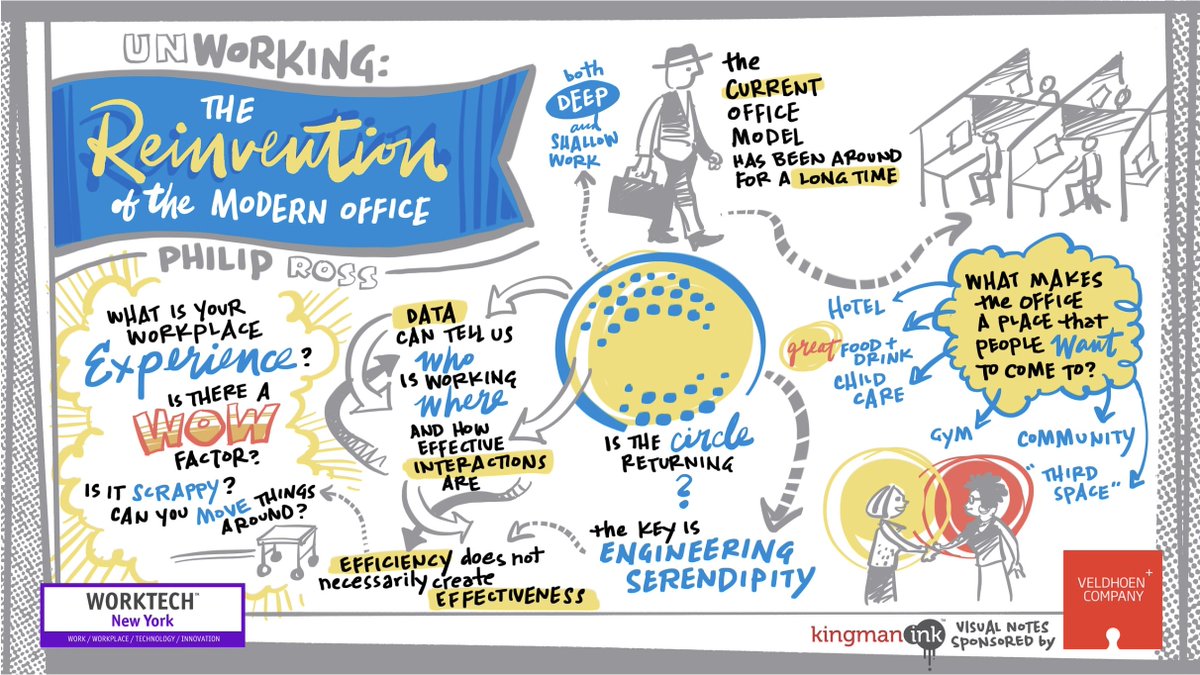 UNWORKING:
THE
Reinvention
of the MODERN OFFICE
PHILIP ROSS
both
DEEP
and
SHALLOW
WORK
the
CURRENT
OFFICE
MODEL
HAS BEEN AROUND
FOR A LONG TIME
WHAT IS YOUR
WORKPLACE
Experience?
IS THERE A
WOW
FACTOR?
IS IT SCRAPPY?
CAN YOU MOVE THINGS
AROUND?
DATA
CAN TELL US
who
IS WORKING
where
AND HOW
EFFECTIVE
INTERACTIONS
ARE
EFFICIENCY does not
necessarily create
EFFECTIVENESS
IS THE circle
RETURNING
?
the KEY IS
ENGINEERING
SERENDIPITY
WHAT MAKES
the OFFICE
A PLACE that
PEOPLE Want
TO COME TO?
HOTEL
great FOOD +
DRINK
CHILD
CARE
GYM
COMMUNITY
"THIRD
SPACE"
WORKTECH™
New York
WORK / WORKPLACE / TECHNOLOGY / INNOVATION
kingman ink™
VISUAL NOTES
SPONSORED by
VELDHOEN +
COMPANY